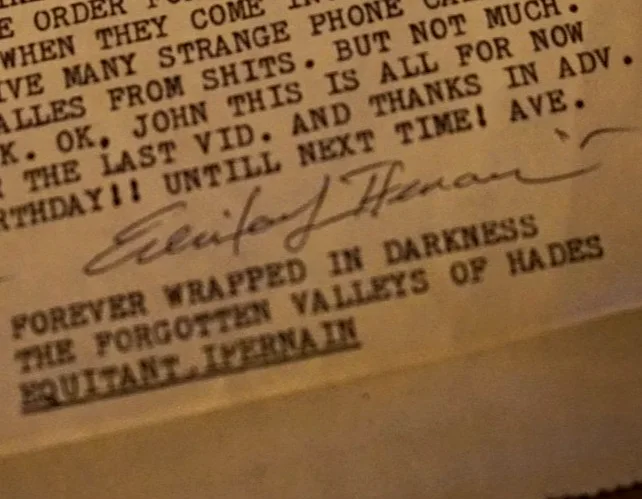 E ORDER FO
WHEN THEY COME IN
IVE MANY STRANGE PHONE CA
ALLES FROM SHITS. BUT NOT MUCH.
K. OK. JOHN THIS IS ALL FOR NOW
THE LAST VID. AND THANKS IN ADV.
RTHDAY!! UNTILL NEXT TIME! AVE.
FOREVER WRAPPED IN DARKNESS
THE FORGOTTEN VALLEYS OF HADES
EQUITANT.IPERNAIN